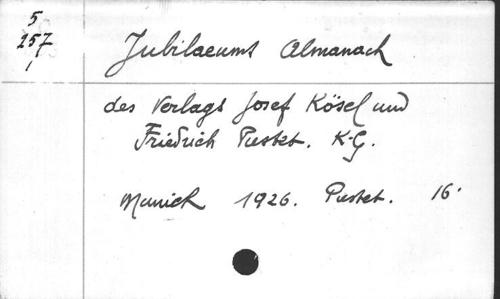 5
257
1
Jubilaeums Almanach
des Verlags Josef Kösel und
Friedrich Pustet. K-G.
Munich 1926. Pustet. 16°